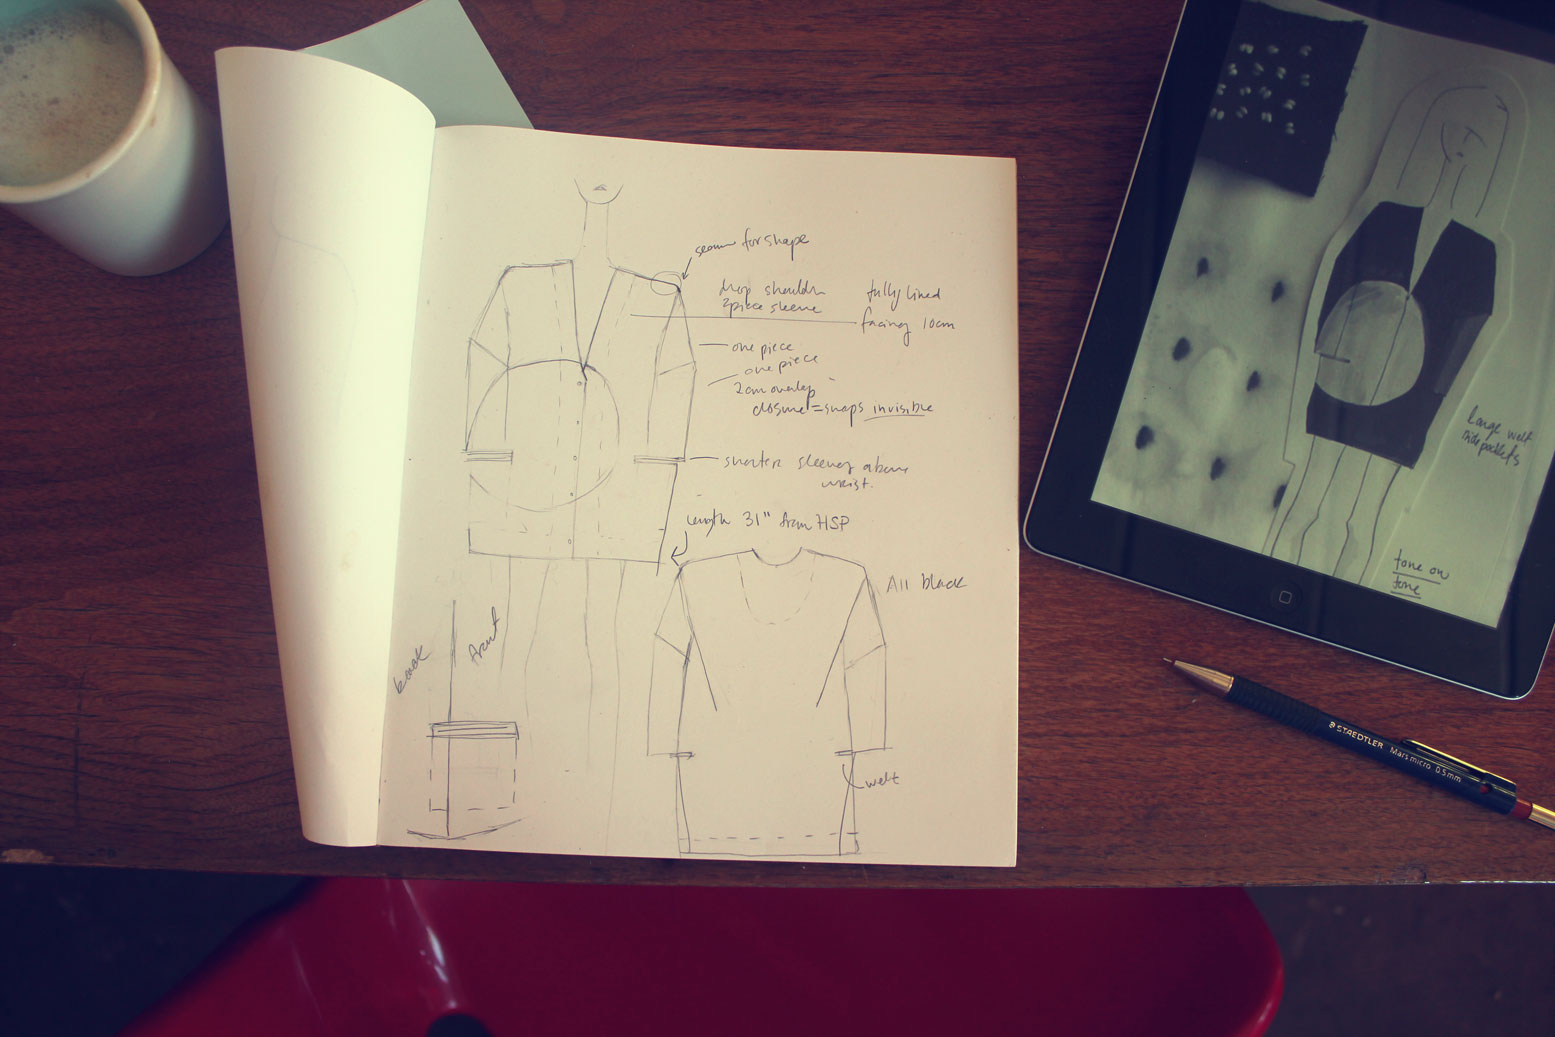 seam for shape
drop shoulder
2piece sleeve
fully lined
facing 10cm
one piece
one piece
2cm overlap
closure = snaps invisible
shorter sleeves above
wrist.
length 31" from HSP
All black
back
front
welt
large welt
side pockets
tone on
tone
STAEDTLER Mars micro 0.5mm